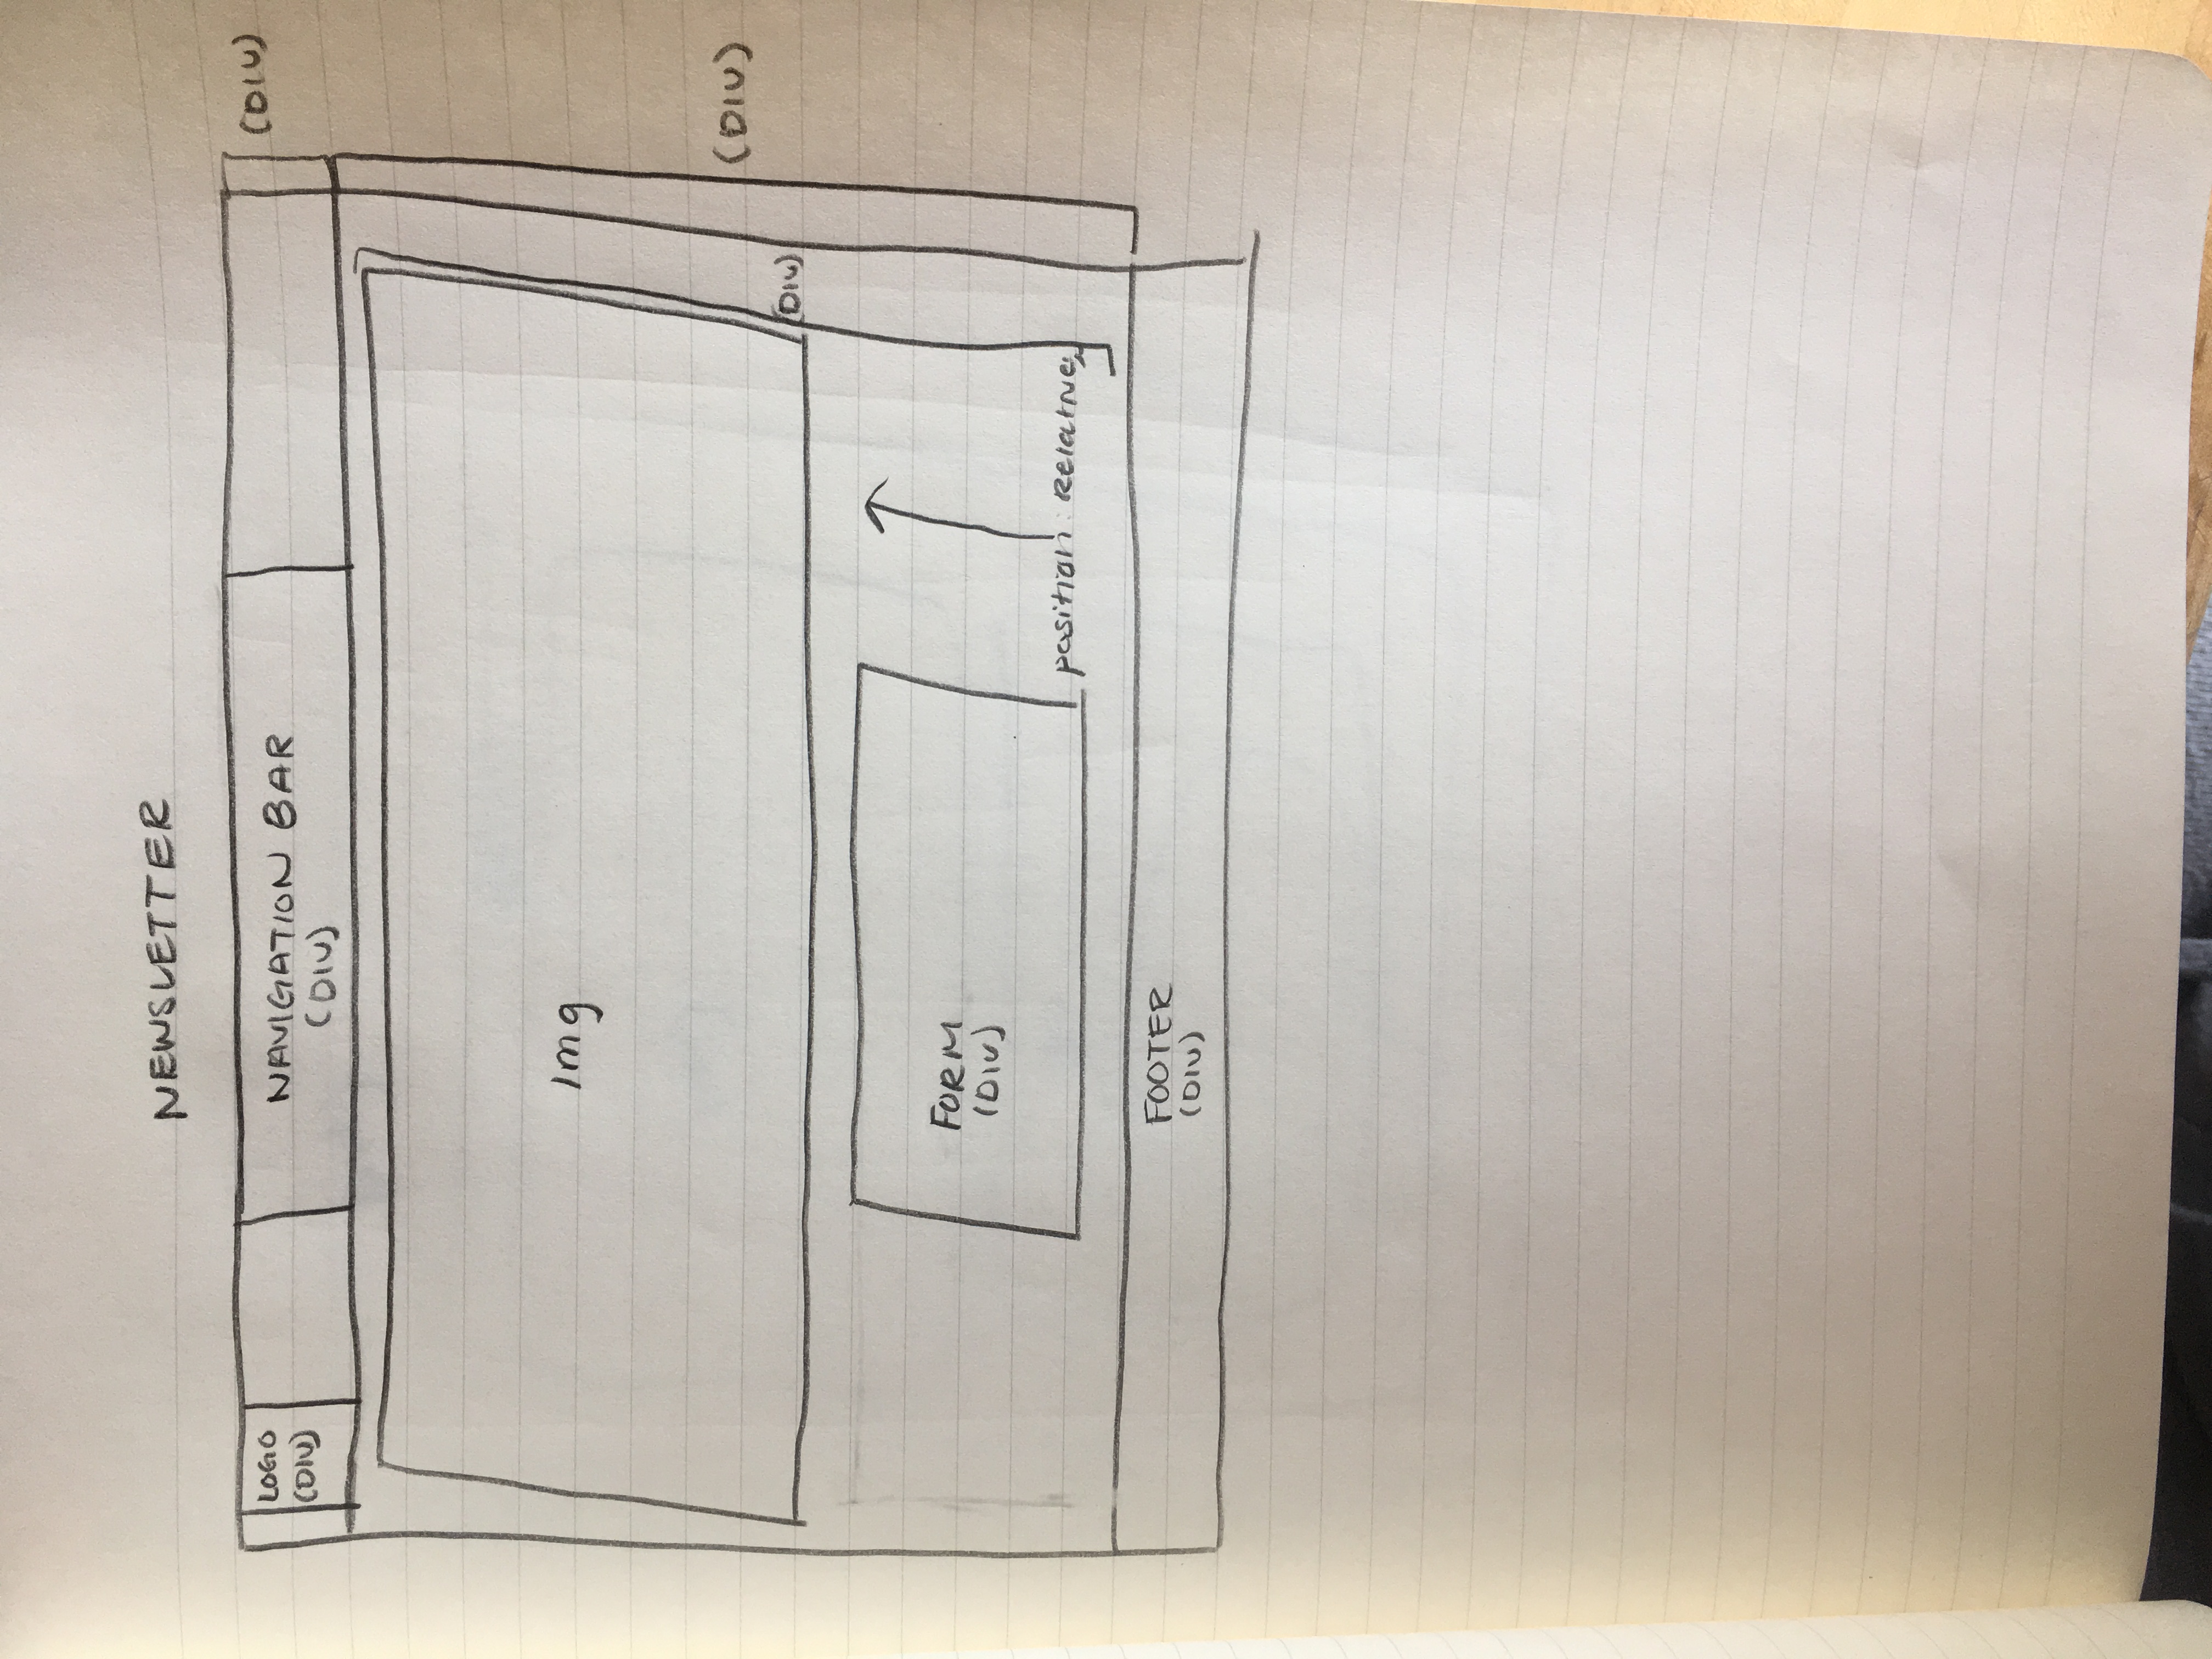 NEWSLETTER
LOGO
(DIV)
NAVIGATION BAR
(DIV)
(DIV)
Img
(DIV)
(DIV)
FORM
(DIV)
position: Relative;
FOOTER
(DIV)